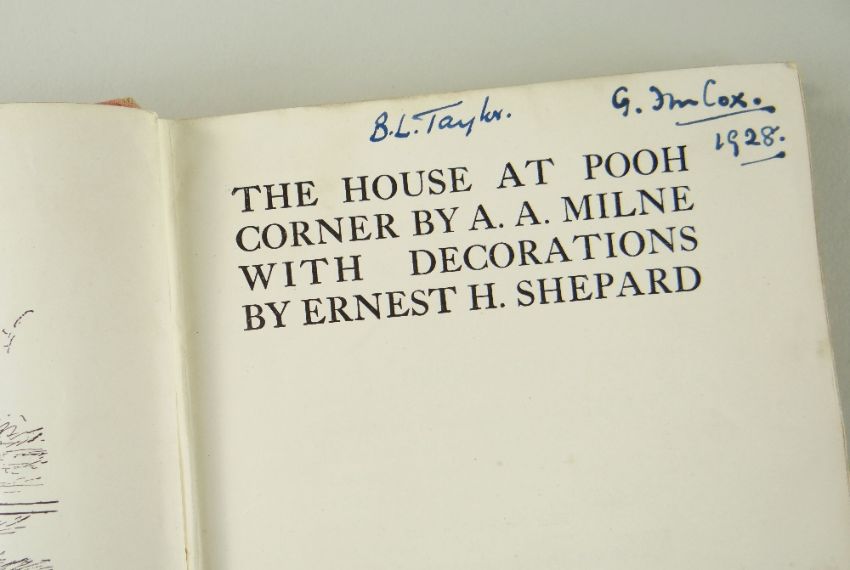 B.L. Taylor.
G. Cox.
1928.
THE HOUSE AT POOH
CORNER BY A. A. MILNE
WITH DECORATIONS
BY ERNEST H. SHEPARD